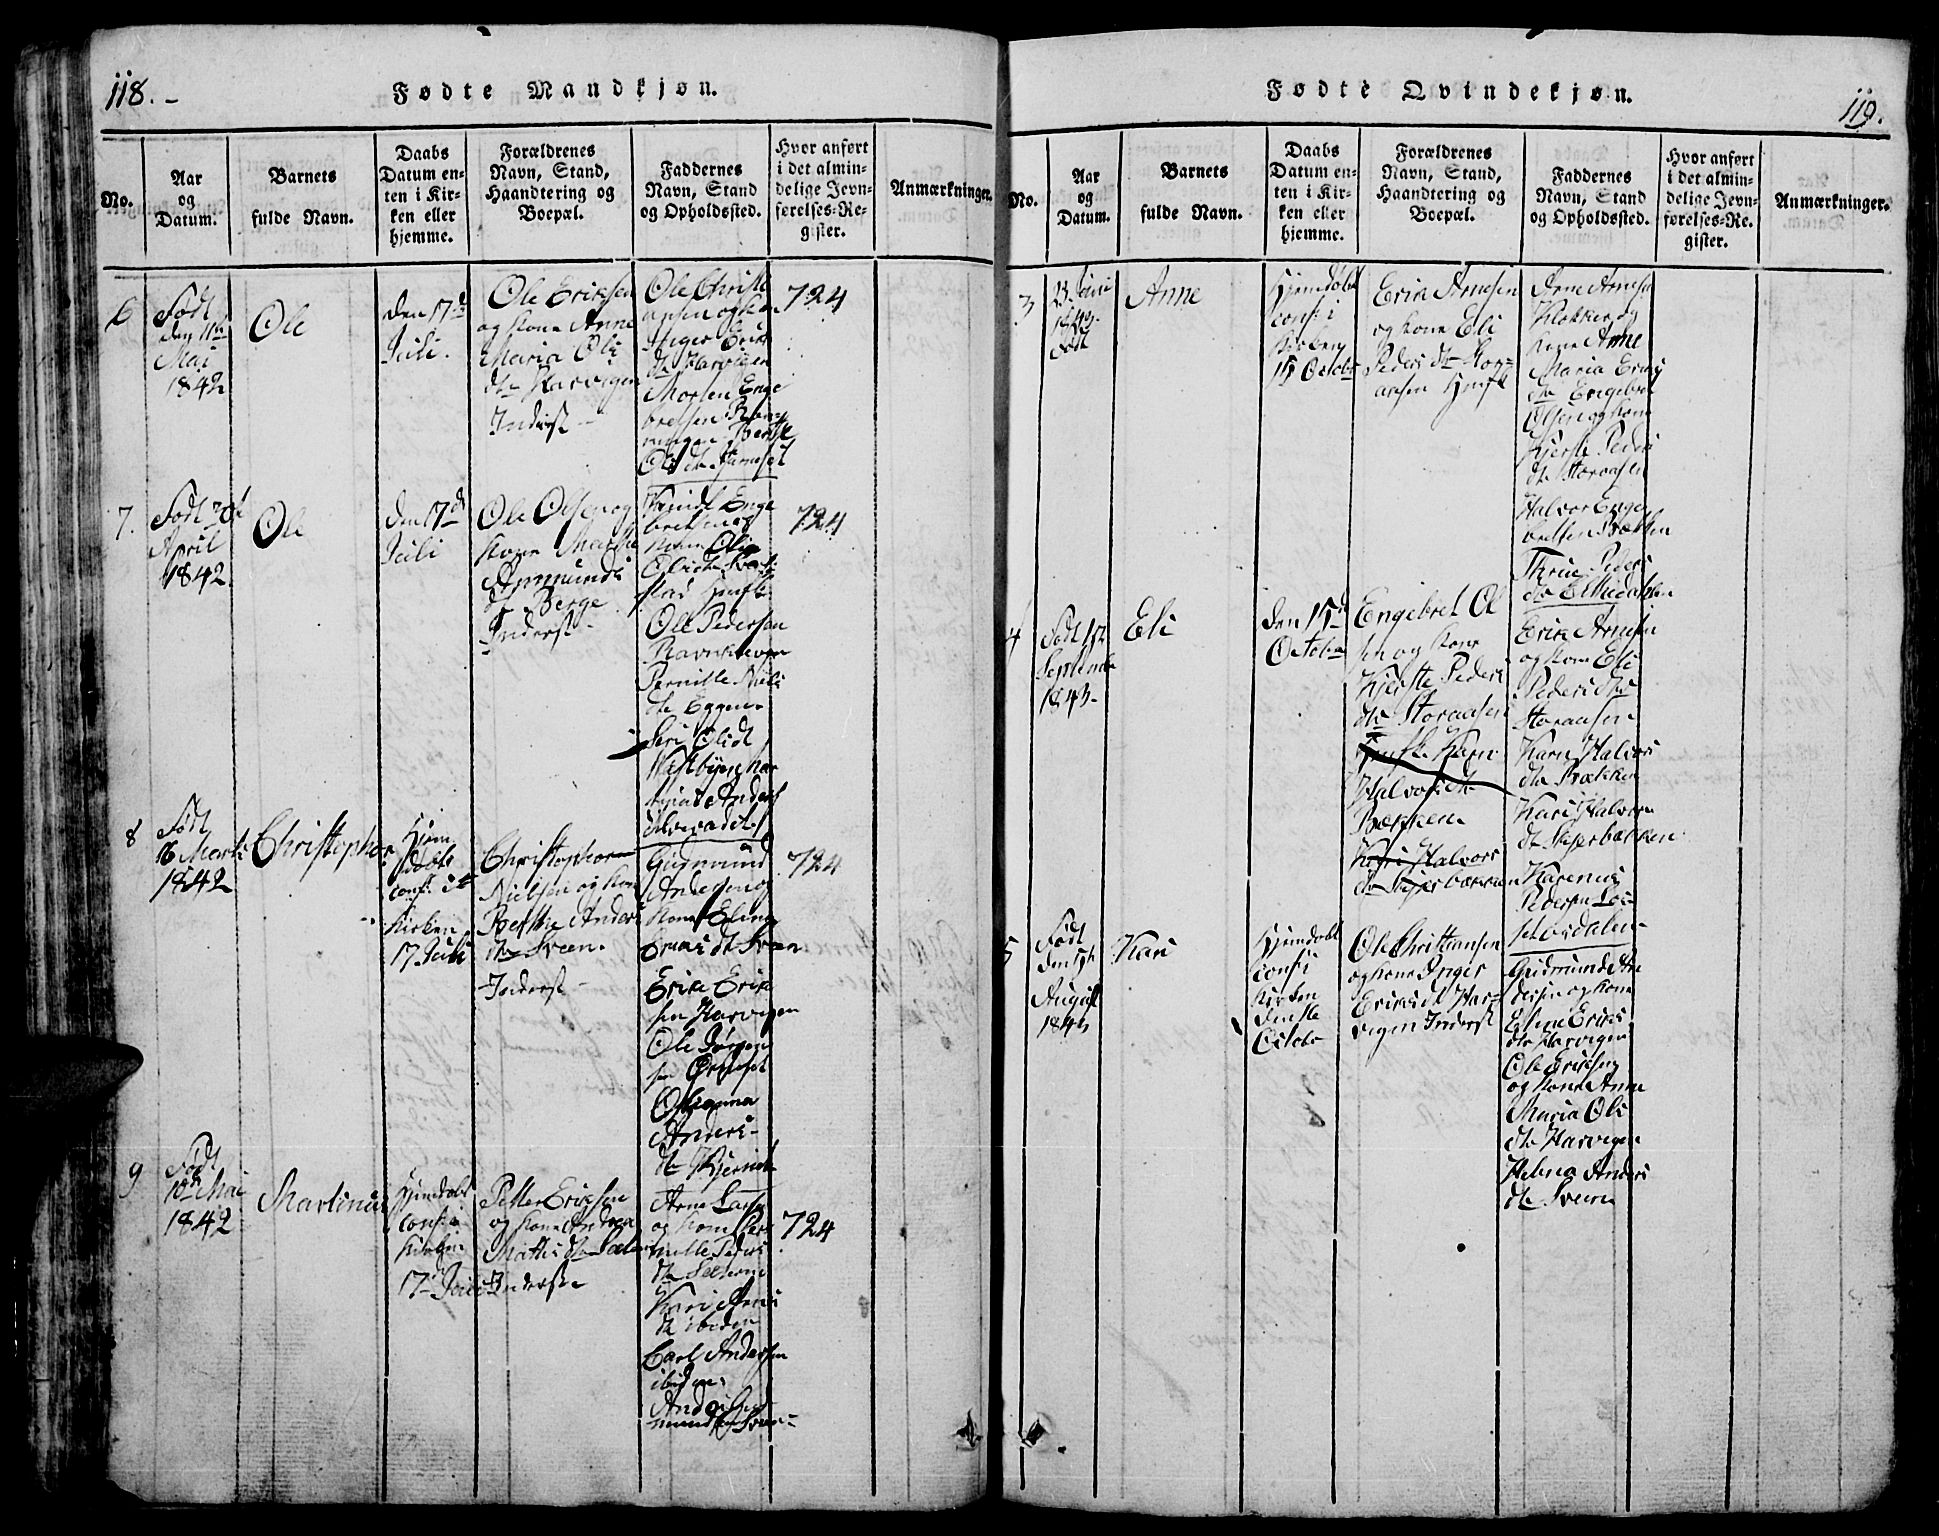 118.-
Fødte Mandkjøn.
No.
Aar
og
Datum.
Barnets
fulde Navn.
Daabs
Datum en-
ten i Kir-
ken eller
hjemme.
Forældrenes
Navn, Stand,
Haandtering og
Boepæl.
Faddernes
Navn, Stand
og Opholdssted.
Hvor anført
i det almin-
delige Jevn-
førelses-Re-
gister.
Anmærkninger.
6
Født
den 11te
Mai
1842
Ole
den 17de
Juli.
Ole Eriksen
og Kone Anne
Maria Ols
dtr Harvigen
Inderst -
Ole Christi
ansen og Kon
Inger Eriks
dtr Harvigen
Morten Enge
bretsen
Berthe
Ols dtr
724
7.
Født 20d
April
1842.
Ole
den 17de
Juli
Ole Olsen og
Kone Marthe
Ammunds
dr Berge
Inderst -
Enge
bretsen og
Kone Olia
Ols dtr
Ole Pedersen
Pernille Niels
dtr Eggen-
Siri Olsdt
724
8
Født
16 Marts
1842
Christopher
Hjem
døbt
conf: i
Kirken
17 Juli
Christopher
Nielsen og Kon
Berthe Anders
dtr Sveen.
Inderst -
Gudmund
Andersen og
Kone Eline
Eriks dt Sveen
Erik Erik
sen Harvigen
Ole Jørgen
sen
Johanna
Anders-
dtr
724
9
Født
10de Mai
1842
Martinus
Hjemdøbt
conf: i
Kirken
17 Juli
Petter Eriksen
og Kone Andrea
Mathis dtr
Inderst
Arne Larsen
og Kone Per
nille Peders
dtr
Kari Arnes
dtr ibiden
Carl Andersen
ibiden
724
119.
Fødte Qvindekjøn.
No.
Aar
og
Datum.
Barnets
fulde Navn.
Daabs
Datum en-
ten i Kir-
ken eller
hjemme.
Forældrenes
Navn, Stand,
Haandtering og
Boepæl.
Faddernes
Navn, Stand
og Opholdssted.
Hvor anført
i det almin-
delige Jevn-
førelses-Re-
gister.
Anmærkninger.
3
1843.
Født
Anne
Hjemdøbt
conf: i
Kirken
15 Octobr
Erik Arnesen
og Kone Eli
Peders dtr Stor-
aasen Huusf
Arne Arnesen
Klokker og
Kone Anne
Maria Eriks
dtr Engebret
Olsen og Kone
Kjerste Peders
dtr Storaasen
Halvor Enge
bretsen Bækken
Thrine Peders
dtr
4
Født 1st
Septembr
1843-
Eli
den 15d
October
Engebret Ol
sen og Kone
Kjerste Peders
dtr Storaasen
Huusf. Karn
Halvors dtr
Bækken
Kari Halvors
dtr Skjerbækken
Erik Arnesen
og Kone Eli
Peders dtr
Storaasen
Karn Halvors
dtr Bækken
Kari Halvors
dtr Skjerbækken
Karenus
Pedersen
5
Født
August
1843
Kari
Hjemdøbt
conf: i
Kirken
Octobr
Ole Christiansen
og Kone Inger
Eriks dt Har-
vigen Inderst
Gudmund An
dersen og Kone
Eline Eriks
dtr Harvigen
Ole Eriksen
og Kone Anne
Maria Ols
dtr Harvigen
Helena Anders
dtr Sveen